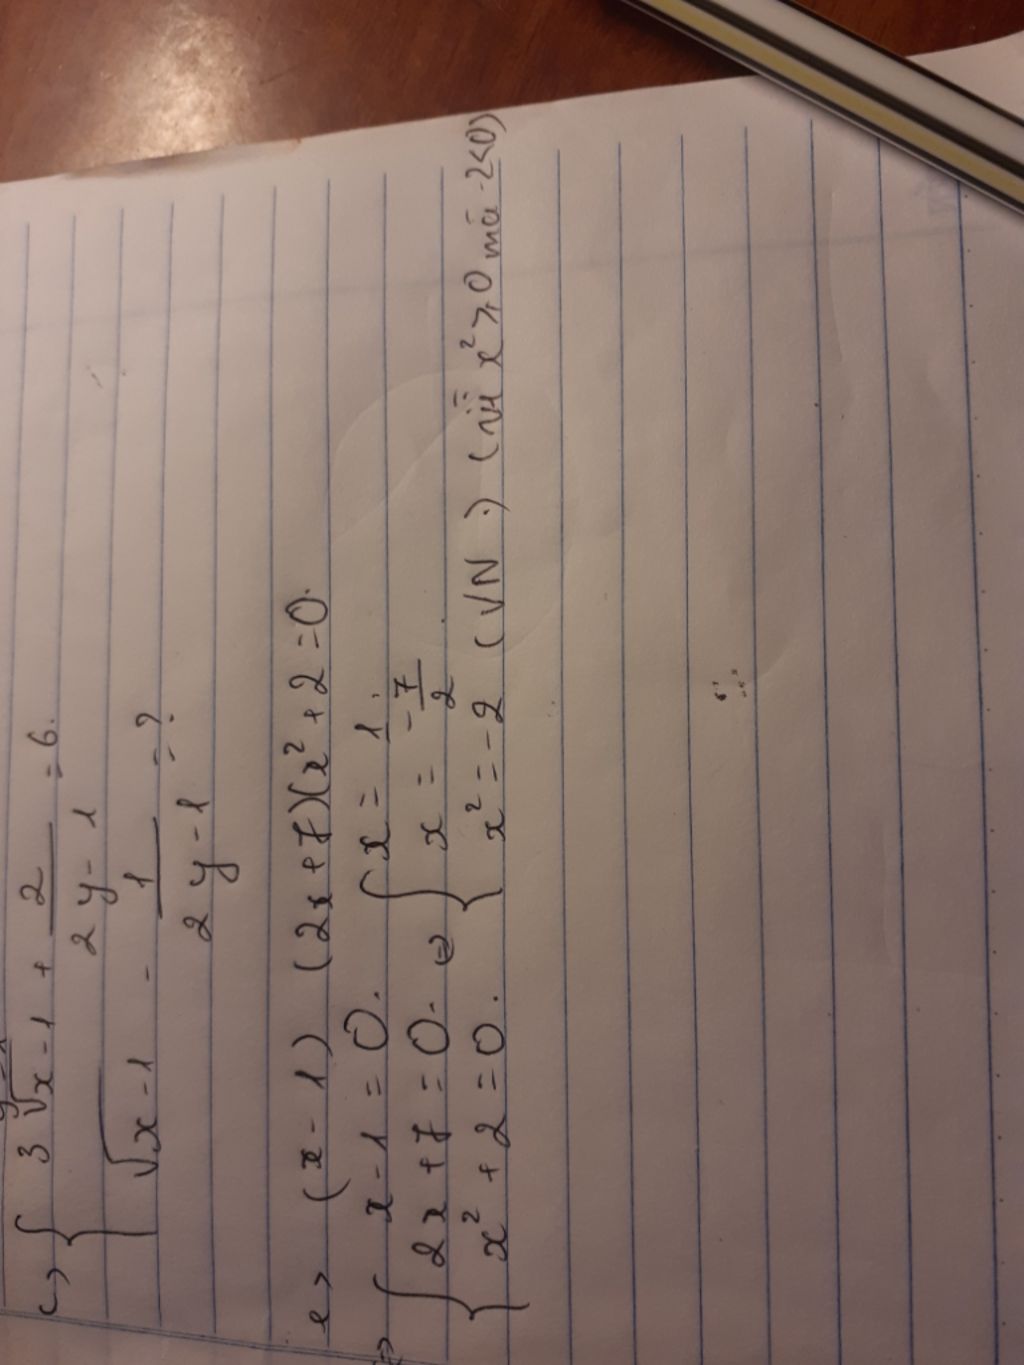 c) { 3√x-1 + 2/2y-1 = 6.
√x-1 - 1/2y-1 = ?
e) (x-1) (2x+7)(x²+2=0.
=> { x-1=0. { x = 1.
{ 2x+7=0. <=> { x = -7/2
{ x²+2=0. { x² = -2 (VN.) (vì x² ⩾ 0 mà -2<0)